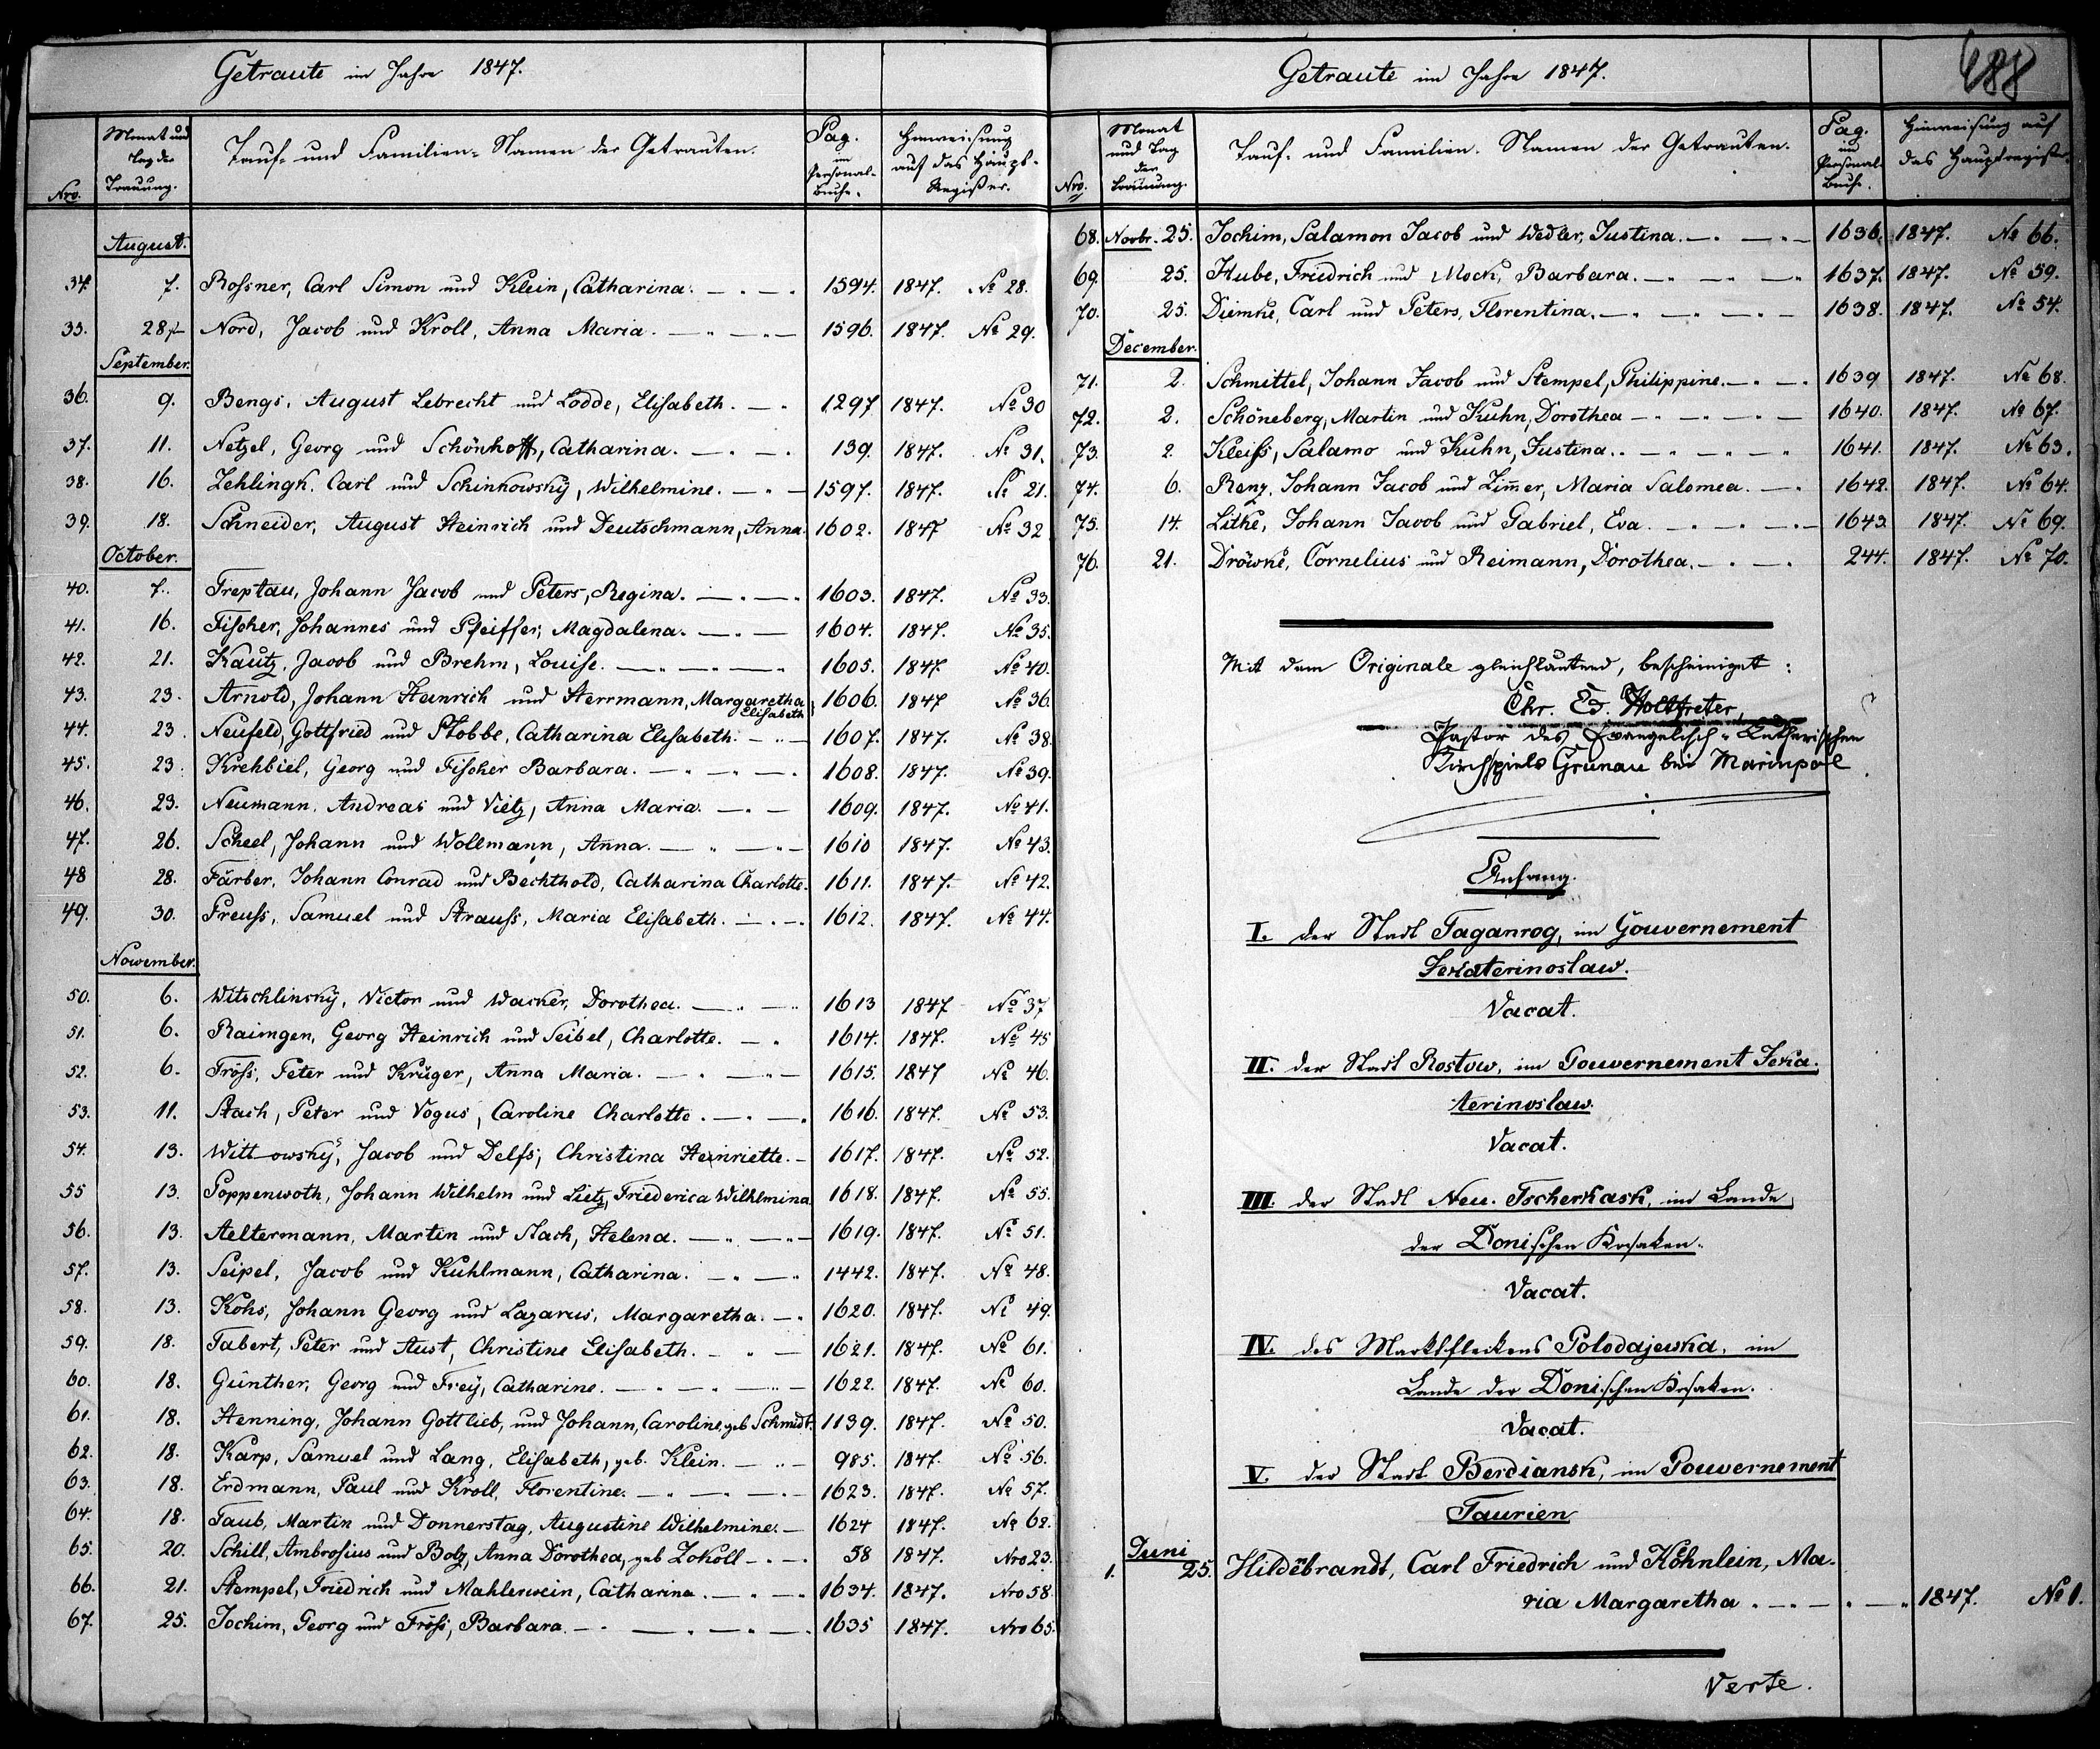 Getraute im Jahre 1847.
Nro. Monat und Tag der Trauung. Tauf- und Familien-Namen der Getrauten. Pag. im Personal-Buche. Hinweisung auf das Haupt-Register.
August.
34. 7. Rossner, Carl Simon und Klein, Catharina. 1594. 1847. № 28.
35. 28. Nord, Jacob und Kroll, Anna Maria. 1596. 1847. № 29.
September.
36. 9. Bengs, August Lebrecht und Lodde, Elisabeth. 1297 1847. № 30
37. 11. Netzel, Georg und Schönhoff, Catharina. 139. 1847. № 31.
38. 16. Zehlingk. Carl und Schinkowsky, Wilhelmine. 1597. 1847. № 21.
39. 18. Schneider, August Heinrich und Deutschmann, Anna. 1602. 1847 № 32
October.
40. 7. Treptau, Johann Jacob und Peters, Regina. 1603. 1847. № 33.
41. 16. Fischer, Johannes und Pfeiffer, Magdalena. 1604. 1847. № 35.
42. 21. Kautz, Jacob und Brehm, Louise. 1605. 1847 № 40.
43. 23. Arnold, Johann Heinrich und Herrmann, Margaretha Elisabeth 1606. 1847 № 36.
44. 23. Neufeld, Gottfried und Stobbe, Catharina Elisabeth. 1607. 1847. № 38.
45. 23. Krehbiel, Georg und Fischer Barbara. 1608. 1847. № 39.
46. 23. Neumann, Andreas und Vietz, Anna Maria. 1609. 1847. № 41.
47. 26. Scheel, Johann und Wollmann, Anna. 1610 1847. № 43.
48 28. Färber, Johann Conrad und Bechthold, Catharina Charlotte. 1611. 1847. № 42.
49. 30. Preuss, Samuel und Strauss, Maria Elisabeth. 1612. 1847. № 44.
Nowember.
50. 6. Witschlinsky, Victor und Wacker, Dorothea. 1613 1847 № 37
51. 6. Raimgen, Georg Heinrich und Seibel, Charlotte. 1614. 1847. № 45
52. 6. Fröss, Peter und Krüger, Anna Maria. 1615. 1847 № 46.
53. 11. Stach, Peter und Vogus, Caroline Charlotte. 1616. 1847. № 53.
54. 13. Wittowsky, Jacob und Delfs, Christina Heinriette. 1617. 1847. № 52.
55 13. Poppenwoth, Johann Wilhelm und Lietz, Friederica Wilhlmina 1618. 1847. № 55.
56. 13. Aeltermann, Martin und Stach, Helena. 1619. 1847. № 51.
57. 13. Seipel, Jacob und Kuhlmann, Catharina. 1442. 1847. № 48.
58. 13. Kohs, Johann Georg und Lazarus, Margaretha. 1620. 1847. № 49.
59. 18. Tabert, Peter und Aust, Christine Elisabeth. 1621. 1847. № 61.
60. 18. Günther, Georg und Frey, Catharine. 1622. 1847. № 60.
61. 18. Henning, Johann Gottlieb, und Johann, Caroline, geb Schmidt. 1139. 1847. № 50.
62. 18. Karp, Samuel und Lang, Elisabeth, geb. Klein. 985. 1847. № 56.
63. 18. Erdmann, Paul und Kroll, Florentine. 1623. 1847. № 57.
64. 18. Taub, Martin und Donnerstag, Augustine Wilhelmine. 1624 1847. № 62.
65. 20. Schill, Ambrosius und Bolz, Anna Dorothea, geb Zokoll 58 1847. Nro 23.
66. 21. Stempel, Friedrich und Mahlerwein, Catharina. 1634. 1847. Nro 58.
67. 25. Jochim, Georg und Fröss, Barbara. 1635 1847. Nro 65.
Getraute im Jahre 1847.
688
Nro. Monat und Tag der Trauung. Tauf- und Familien-Namen der Getrauten. Pag. im Personal-Buche. Hinweisung auf das Hauptregister.
68. Novbr. 25. Jochim, Salamon Jacob und Wedler, Justina. 1636. 1847. № 66.
69. 25. Hube, Friedrich und Mock, Barbara. 1637. 1847. № 59.
70. 25. Diemke, Carl und Peters, Florentina. 1638. 1847. № 54.
December.
71. 2. Schmittel, Johann Jacob und Stempel, Philippine. 1639 1847. № 68.
72. 2. Schöneberg, Martin und Kuhn, Dorothea 1640. 1847. № 67.
73. 2. Kleiss, Salamo und Kuhn, Justina. 1641. 1847. № 63.
74. 6. Renz, Johann Jacob und Zim̄er, Maria Salomea. 1642. 1847. № 64.
75. 14. Litke, Johann Jacob und Gabriel, Eva. 1643. 1847. № 69.
76. 21. Dröwke, Cornelius und Reimann, Dorothea. 244. 1847. № 70.
Mit dem Originale gleichlautend, bescheiniget:
Chr. Ed. Holtfreter,
Pastor des Evangelisch-Lutherischen
Kirchspiels Grunau bei Mariupol.
Anhang.
I. der Stadt Taganrog, im Gouvernement
Jekaterinoslaw.
Vacat.
II. der Stadt Rostow, im Gouvernement Jeka-
terinoslaw.
Vacat.
III. der Stadt Neu-Tscherkask, im Lande
der Donischen Kosaken.
Vacat.
IV. des Marktfleckens Polodajewka, im
Lande der Donischen Kosaken.
Vacat.
V. der Stadt Berdiansk, im Gouvernement
Taurien
Juni
1. 25. Hildebrandt, Carl Friedrich und Höhnlein, Ma-
ria Margaretha. 1847. № 1.
Verte.